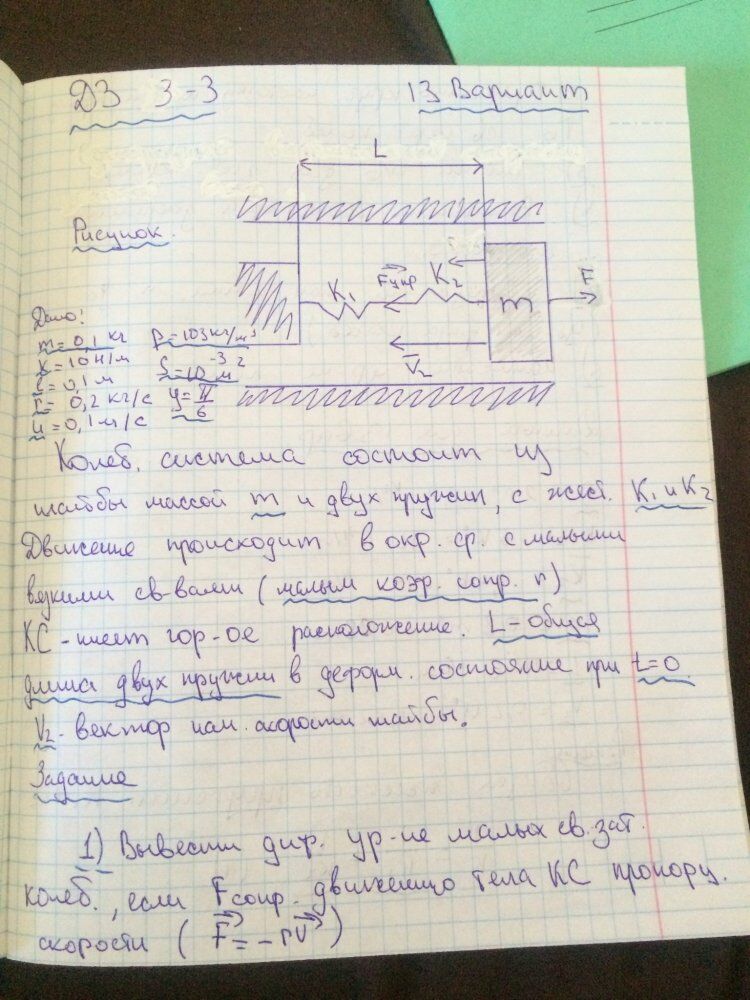 ДЗ 3-3
13 Вариант
L
Рисунок.
K₁
Fупр
K₂
m
F
V₂
Дано:
m=0,1 кг ρ=103кг/м³
k=10Н/м S=10⁻³м²
ℓ=0,1м y=π/6
r=0,2кг/с
u=0,1м/с
Колеб. система состоит из
шайбы массой m и двух пружин, с жест. K₁ и K₂
Движение происходит в окр. ср. с малыми
вязкими св-вами (малым коэф. сопр. r)
КС-имеет гор-ое расположение. L-общая
длина двух пружин в деформ. состояние при t=0.
V₂-вектор нач. скорости шайбы.
Задание
1) Вывести диф. ур-ие малых св. зат.
колеб., если Fсопр. движению тела КС пропорц.
скорости (F=-rV)